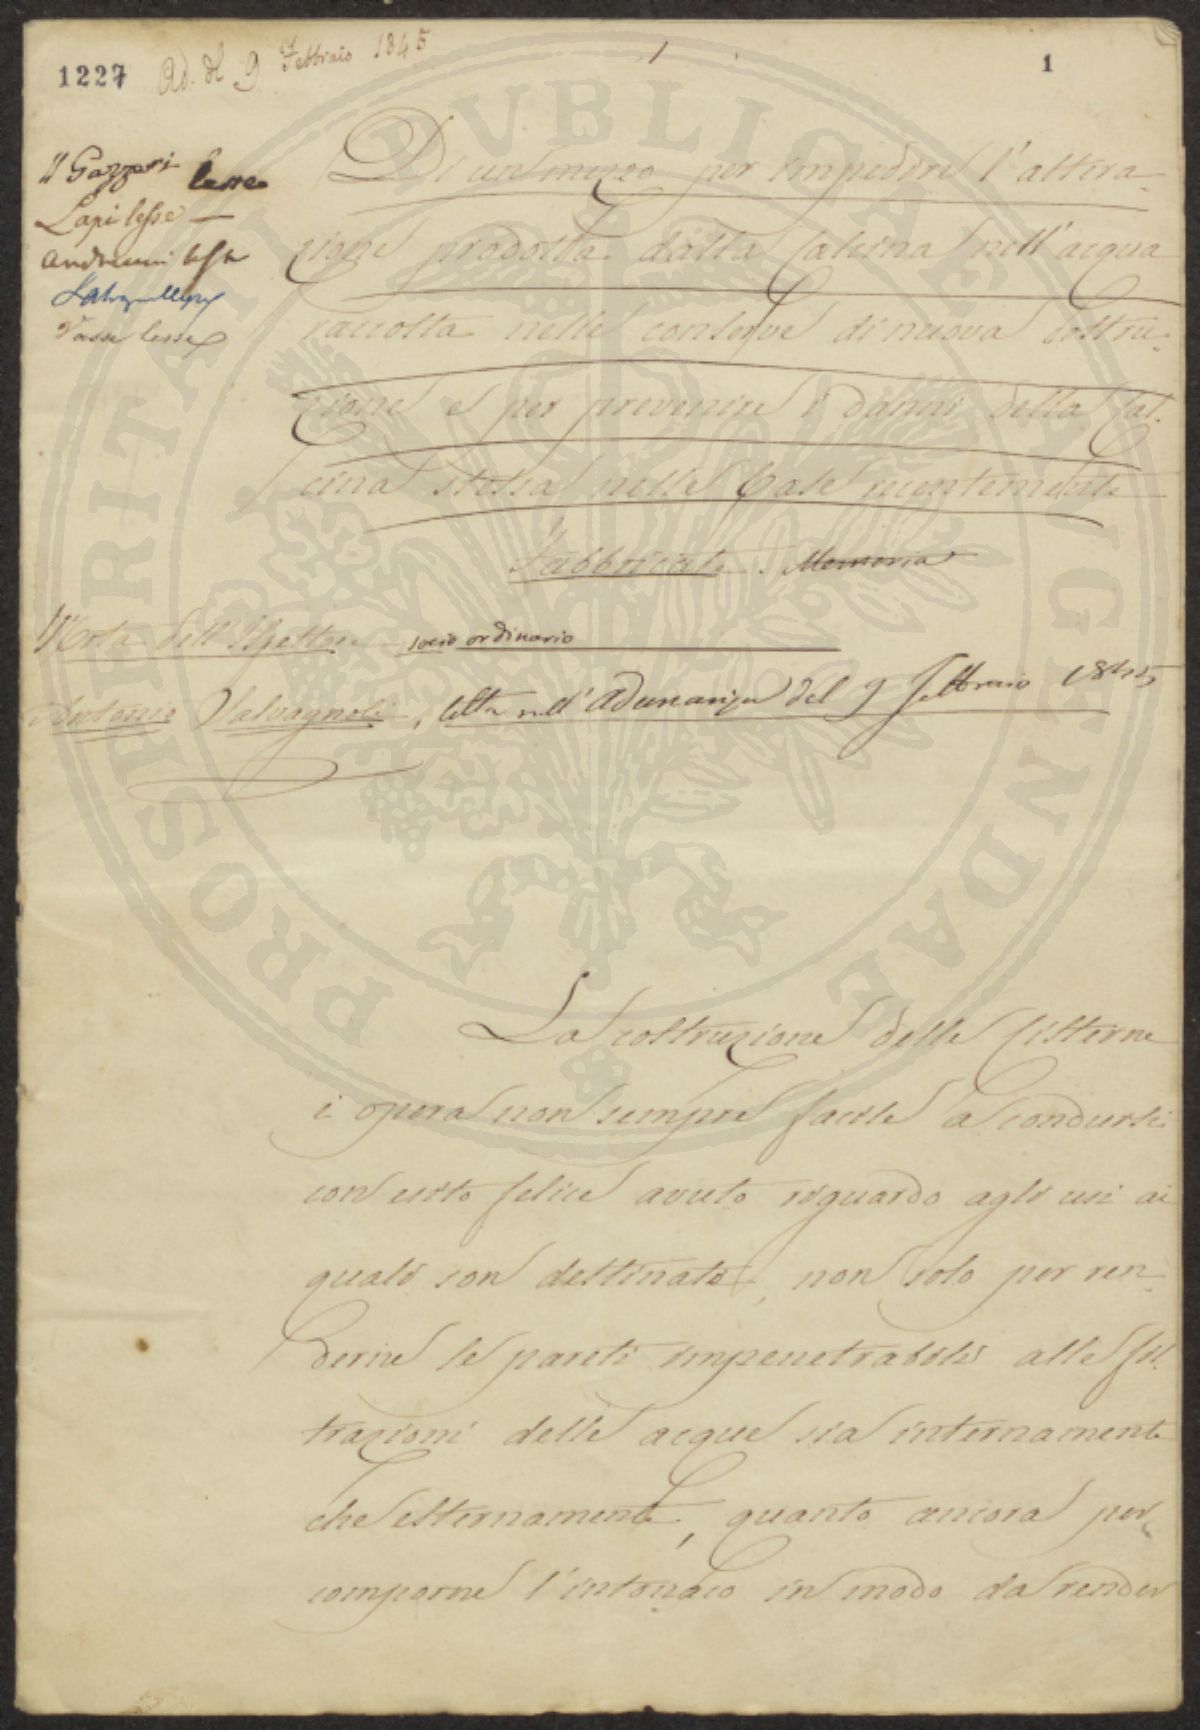 1227 Ad. del 9 Febbraio 1845
1
1
Il Gazzeri lesse
Lapi lesse
Andreucci lesse
lesse
Di un mezzo per impedire l'altera-
zione prodotta dalla Calcina nell'acqua
raccolta nelle conserve di nuova costru-
zione e per prevenire i danni della Cal-
cina stessa nelle Case recentemente
Fabbricate. Memoria
Nota dell' Ispettore socio ordinario
Antonio Salvagnoli, letta nell' Adunanza del 9 Febbraio 1845
La costruzione delle Cisterne
è opera non sempre facile a condursi
con esito felice avuto riguardo agli usi ai
quali son destinate, non solo per ren-
derne le pareti impenetrabili alle fil-
trazioni delle acque sia internamente
che esternamente, quanto ancora per
comporne l'intonaco in modo da render
PROSPERITATI PVBLICAE AVGENDAE